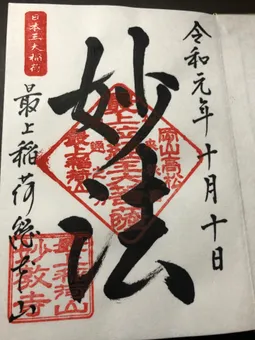 令和元年十月十日
岡山高松
妙法
最上稲荷山
日本三大稲荷
最上稲荷総本山
最上稲荷山
妙教寺